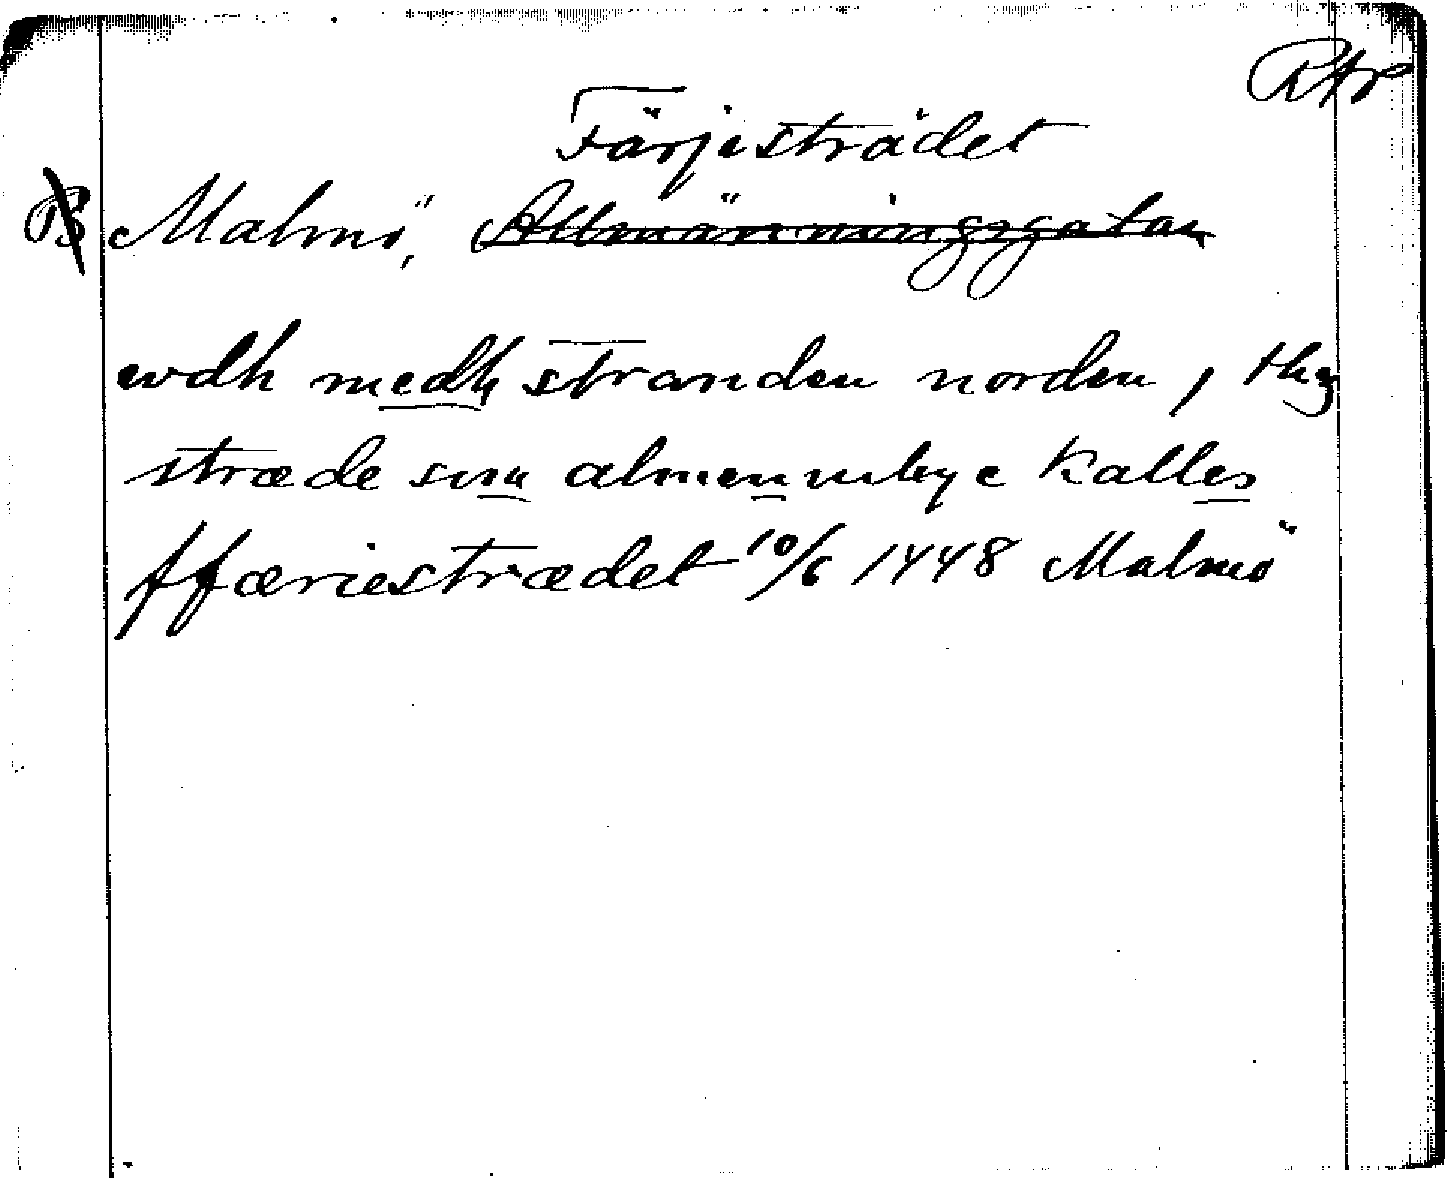 RAp
Färjesträdet
B Malmö, Allmänningsgatan
wdh medh stranden norden, thz
stræde som almennelige kalles
ffæriestrædet 10/6 1448 Malmö